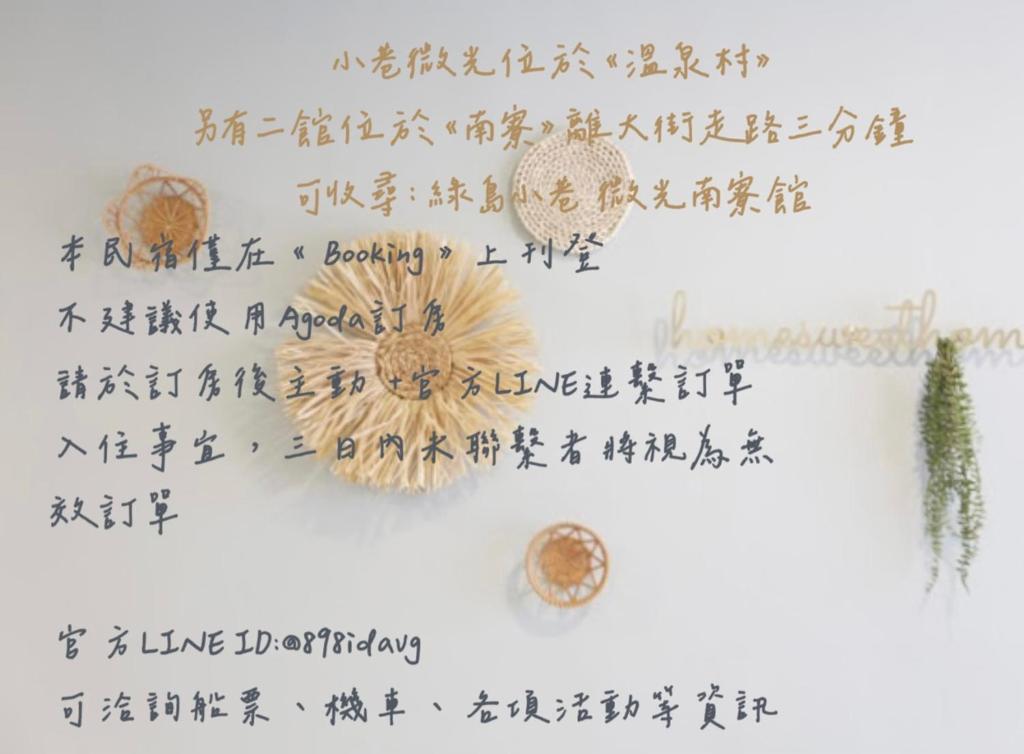 小巷微光位於《溫泉村》
另有二館位於《南寮》離大街走路三分鐘
可收尋:綠島小巷 微光南寮館
本民宿僅在《Booking》上刊登
不建議使用Agoda訂房
homesweethom
請於訂房後主動+官方LINE連繫訂單
入住事宜，三日內未聯繫者將視為無
效訂單
官方LINE ID:@898idavg
可洽詢船票、機車、各項活動等資訊